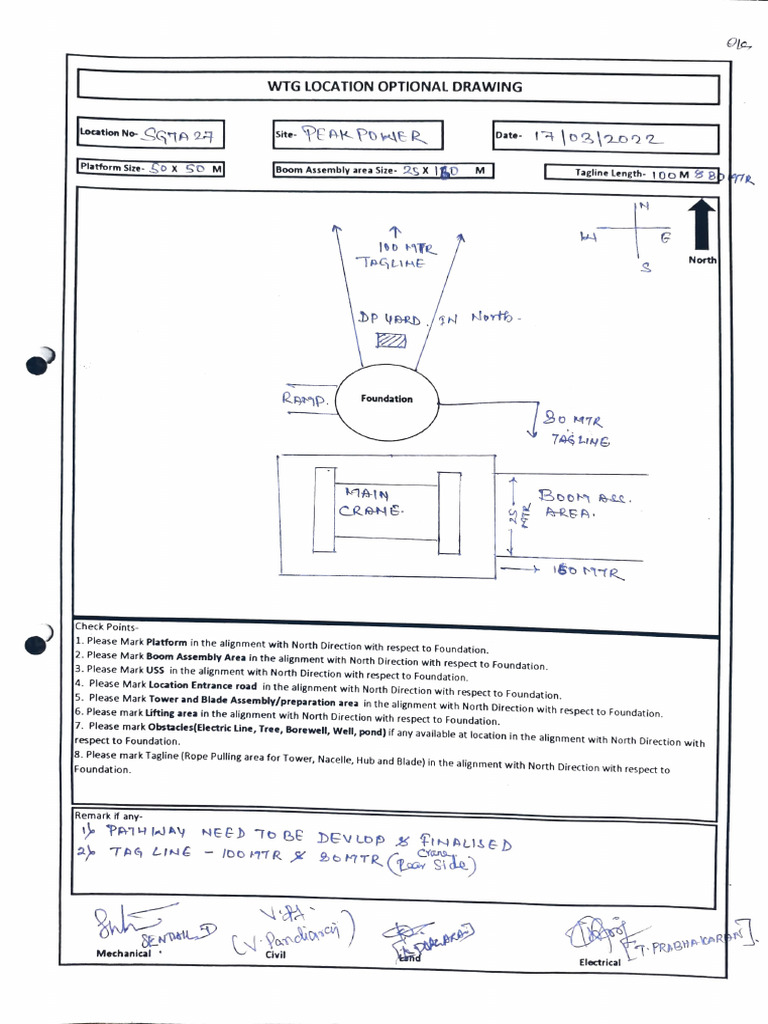 O/c
WTG LOCATION OPTIONAL DRAWING
Location No- SG7A27
Site- PEAK POWER
Date- 17/03/2022
Platform Size- 50 X 50 M
Boom Assembly area Size- 25 X 160 M
Tagline Length- 100 M & 80 MTR
N
W E
S
North
100 MTR
TAGLINE
DP YARD. IN North-
RAMP.
Foundation
80 MTR
TAGLINE
MAIN
CRANE.
25 MTR
BOOM ASS.
AREA.
160 MTR
Check Points-
1. Please Mark Platform in the alignment with North Direction with respect to Foundation.
2. Please Mark Boom Assembly Area in the alignment with North Direction with respect to Foundation.
3. Please Mark USS in the alignment with North Direction with respect to Foundation.
4. Please Mark Location Entrance road in the alignment with North Direction with respect to Foundation.
5. Please Mark Tower and Blade Assembly/preparation area in the alignment with North Direction with respect to Foundation.
6. Please mark Lifting area in the alignment with North Direction with respect to Foundation.
7. Please mark Obstacles(Electric Line, Tree, Borewell, Well, pond) if any available at location in the alignment with North Direction with
respect to Foundation.
8. Please mark Tagline (Rope Pulling area for Tower, Nacelle, Hub and Blade) in the alignment with North Direction with respect to
Foundation.
Remark if any-
1) PATHWAY NEED TO BE DEVLOP & FINALISED
2) TAG LINE - 100MTR & 80MTR (Crane Rear Side)
(V. Pandiaraj)
[T. PRABHAKARAN].
Mechanical
Civil
Land
Electrical